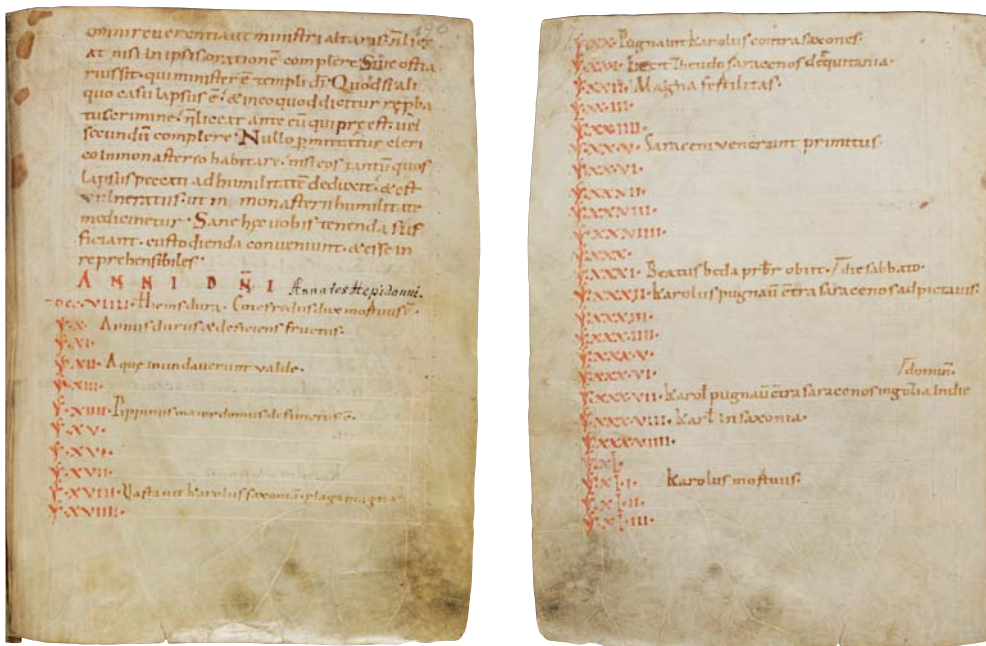 omni reverentia ut ministri altaris n̄ lice
at nisi in ipsis oratione complere Siue ostia
rius sit · qui minister ē templi dī · Quodsi ali
quo casu lapsus ē · & in eo quod dicitur reproba
tus crimine · n̄ liceat ante eū qui pręest · uel
secundū complere · Nullo pmittatur cleri
co in monasterio habitare · nisi eos tantū quos
lapsus peccati ad humilitatē deduxit · & est
vulneratus · ut in monasterii humilitate
medicinetur · Sane hęc uobis tenenda suf
ficiant · custodienda conveniunt · & esse in
reprehensibiles ·
ANNI DÑI Annales Hepidanni.
DCC·VIIII· Hiems dura · Cotefredus dux mortuus ē·
X· Annus durus & deficiens fructus·
XI·
XII· Aque inundaverunt valde·
XIII·
XIIII· Pippinus maior domus defunctus ē·
XV·
XVI·
XVII·
XVIII· Vastavit karolus saxoniā · plaga magna
XVIIII·
XX· Pugnavit karolus contra saxones·
XXI· Eiecit Theudo saracenos de equitania·
XXII· Magna fertilitas·
XXIII·
XXIIII·
XXV· Saraceni venerunt primitus·
XXVI·
XXVII·
XXVIII·
XXVIIII·
XXX·
XXXI· Beatus beda prbr obiit · die sabbato·
XXXII· karolus pugnaū cotra saracenos ad pictauis·
XXXIII·
XXXIIII·
XXXV·
XXXVI· dominī·
XXXVII· karol pugnaū cotra saracenos in gotia in die
XXXVIII· karl in saxonia·
XXXVIIII·
XL·
XLI· karolus mortuus·
XLII·